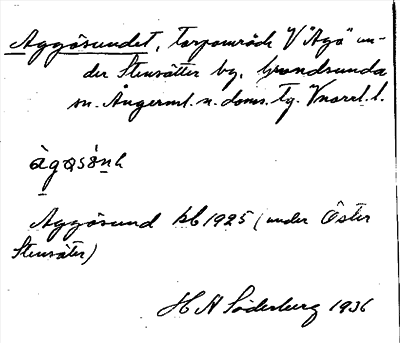 Aggösundet, torpområde V "Agö" un-
der Stensätter by, Grundsunda
sn. Ångerml. n. doms. tg. Vnorrl. l.
àgasə̀nh
Aggösund kb 1925 (under Öster
Stensäter)
H A Söderberg 1936